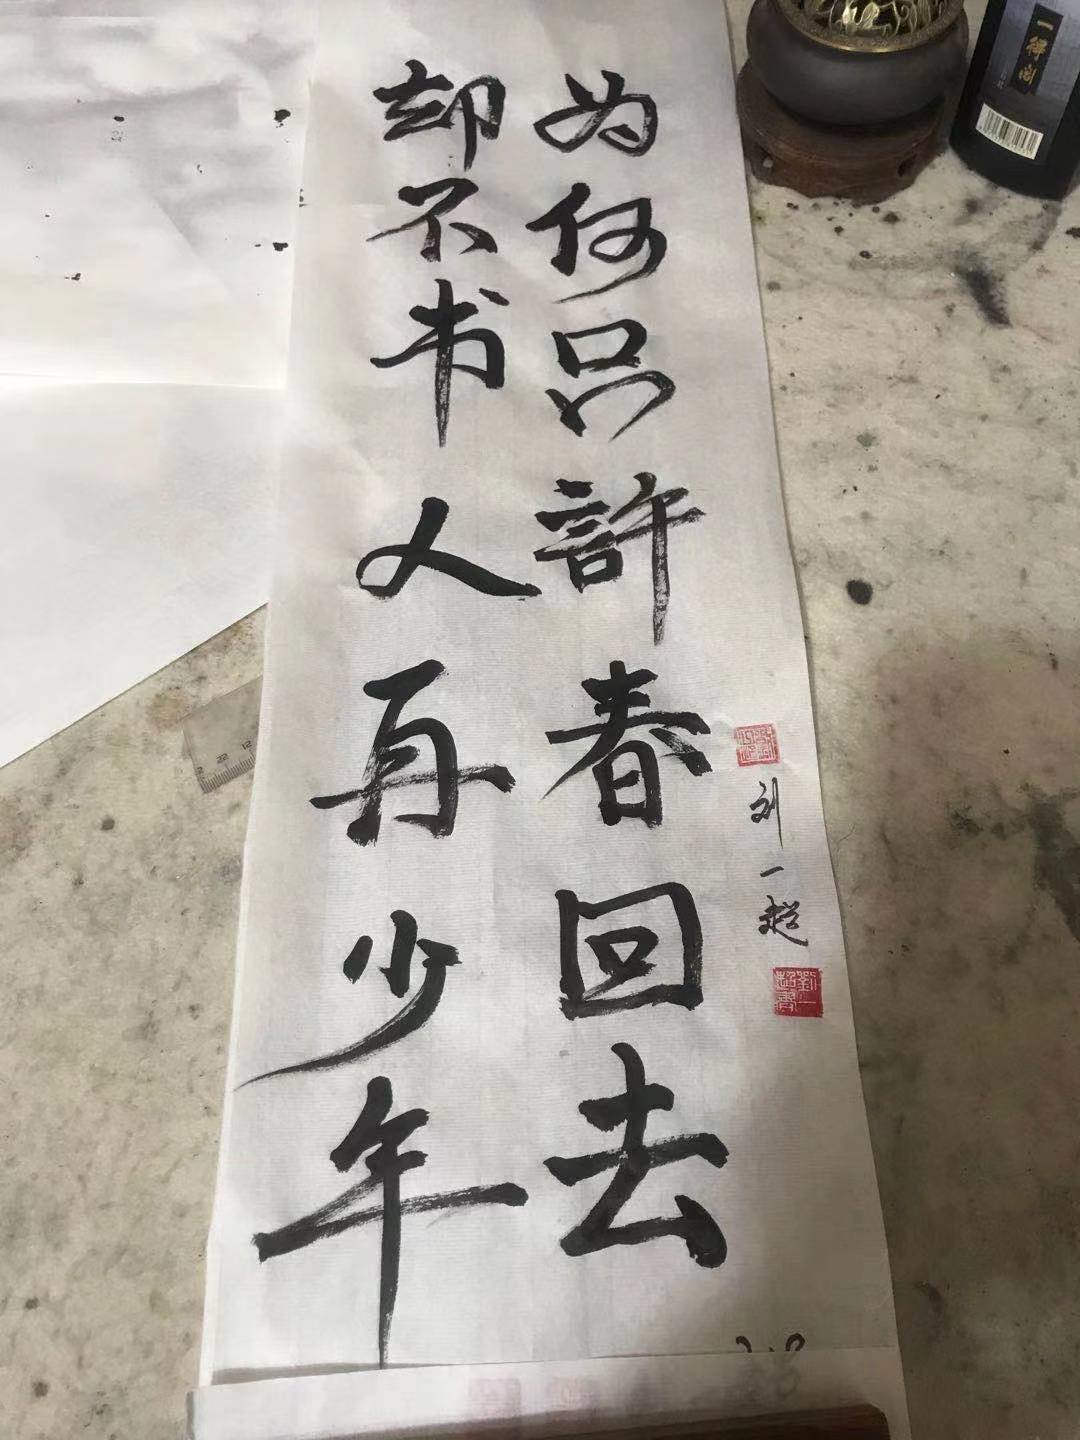 为何只許春回去
却不书人再少年
刘一超
一得阁